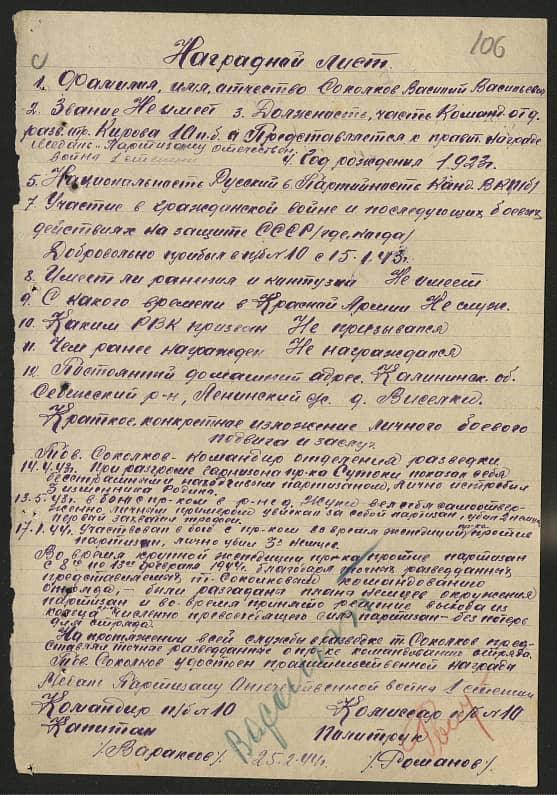 106
Наградной лист.
1. Фамилия, имя, отчество Соколков Василий Васильевич
2. Звание Не имеет 3. Должность, часть Команд. отд.
разв. отр. Кирова 10 п.б. Представляется к правит. награде
медаль-Партизану отечествен.
война 1 степени 4. Год рождения 1923г.
5. Национальность Русский 6. Партийность Канд. ВКП/б/
7. Участие в гражданской войне и последующих боевых
действиях на защите СССР /где, когда/
Добровольно прибыл в п/б №10 с 15.1.43г.
8. Имеет ли ранения и контузии Не имеет
9. С какого времени в Красной Армии Не служ.
10. Каким РВК призван Не призывался
11. Чем ранее награжден Не награждался
12. Постоянный домашний адрес. Калининск. об.
Себежский р-н, Ленинский с/с. д. Виселки.
Краткое, конкретное изложение личного боевого
подвига и заслуг
Тов. Соколков - командир отделения разведки
14.4.43г. При разгроме гарнизона пр-ка Сутоки показал себя
бесстрашным и находчивым партизаном, лично истребил
3 изменника Родины.
13.5.43г. в бою с пр-ком в р-не д. вел себя самоотвер-
женно, личным примером увлекая за собой партизан, убил 2 немца,
первый захватил трофеи.
17.1.44г. Участвовал в бою с пр-ком во время экспедиции против
партизан, лично убил 3х немцев.
Во время крупной экспедиции пр-ка против партизан
с 8го по 13ое февраля 1944г. благодаря точных разведданных,
представляемых т. Соколковым командованию
отряда, - были разгаданы планы немцев окружения
партизан и во-время принято решение выхода из
кольца численно превосходящего сил партизан - без потерь
для отряда.
На протяжении всей службы в разведке т. Соколков пред-
ставлял точные разведданные о пр-ке командованию отряда.
Тов. Соколков удостоен правительственной награды
Медаль Партизану Отечественной война 1 степени
Командир п/б №10 Комиссар п/б №10
Капитан Политрук
/Вараксов/ 25.2.44г. /Романов/